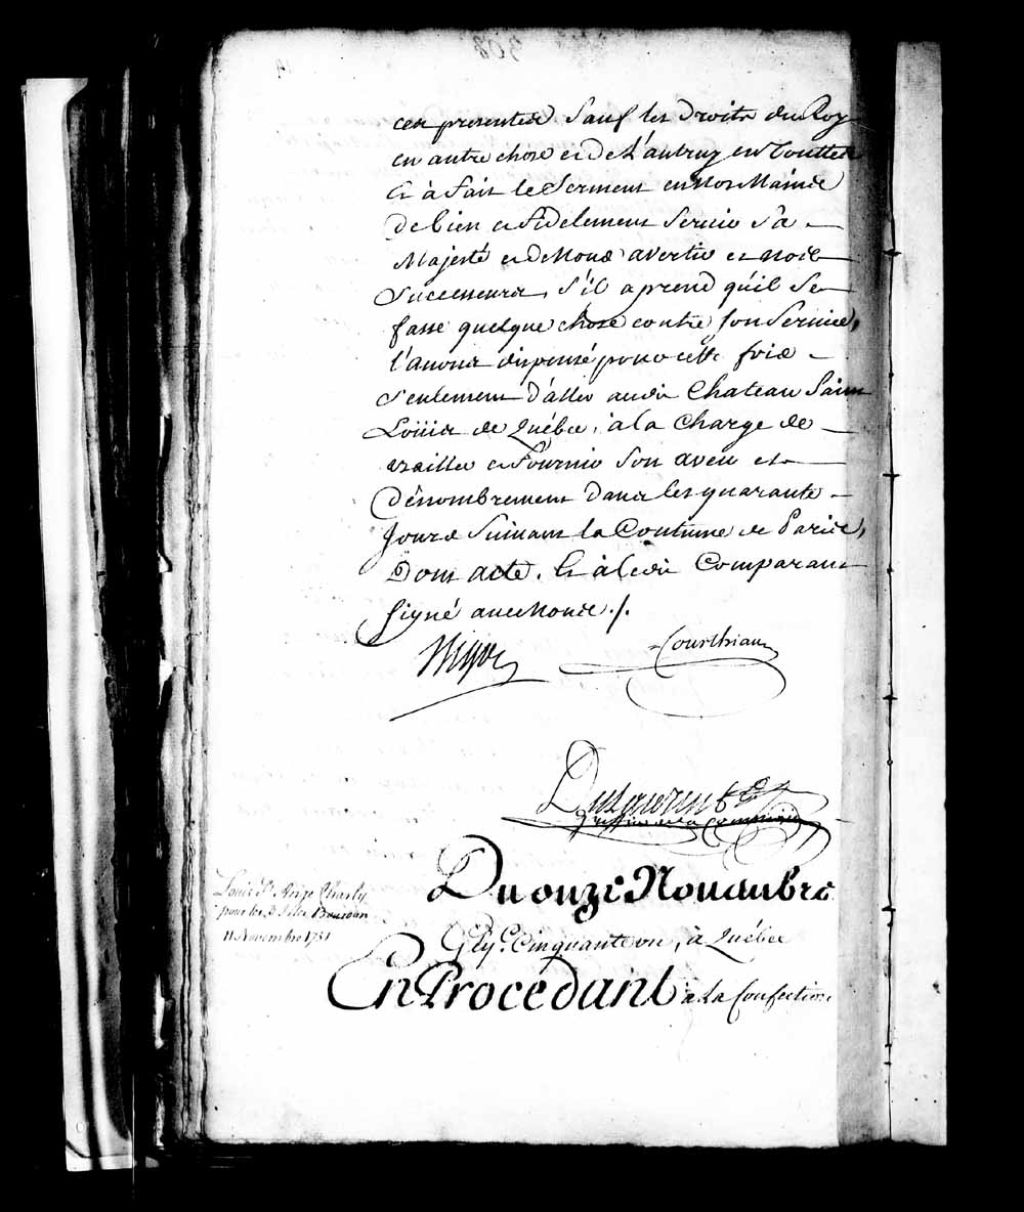 ces presentes Sauf les Droits du Roy
en autre chose et de L'autruy en Touttes
Et à Fait le Serment en Nos Mains
De bien et fidelement Servir Sa
Majesté et de Nous avertir et nos
Successeurs, S'il aprend qu'il Se
fasse quelque chose contre Son Service,
l'avons dispensé pour cette fois
Seulement D'aller audit Chateau Saint
Loüis de Québec, à la Charge de
Bailler et Fournir Son aveu et
Dénombrement Dans les quarante
Jours Suivant la Coutume de Paris,
Dont acte. Et à ledit Comparant
Signé avec Nous ./.
Bigot
Courthiau
Dulaurent
Greffier de la Commission
Du onze Novembre
Louis St Ange Charly
pour les
11 Novembre 1751
Cinquante un, à Québec
En Procédant a La Confection